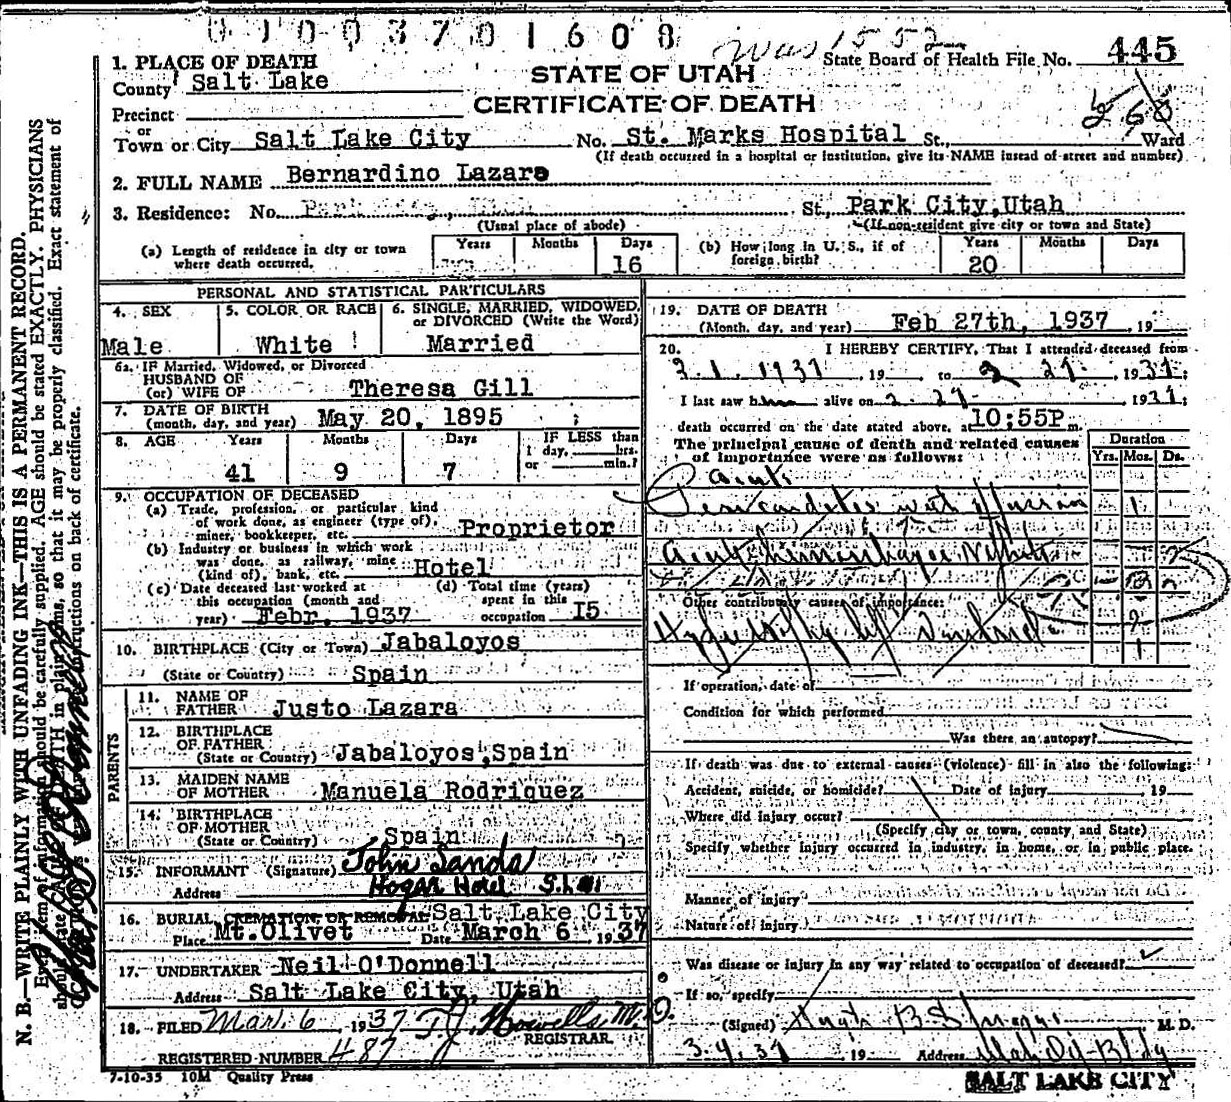 0 1 0 0 3 7 0 1 6 0 8
was 1552
State Board of Health File No. 445
1. PLACE OF DEATH
STATE OF UTAH
County Salt Lake
CERTIFICATE OF DEATH
Precinct
or
Town or City Salt Lake City No. St. Marks Hospital St., Ward
(If death occurred in a hospital or institution, give its NAME instead of street and number)
2. FULL NAME Bernardino Lazara
3. Residence: No. Park City, Utah St., Park City, Utah
(Usual place of abode) (If non-resident give city or town and State)
(a) Length of residence in city or town where death occurred. Years Months Days 16
(b) How long in U. S., if of foreign birth? Years 20 Months Days
PERSONAL AND STATISTICAL PARTICULARS
4. SEX Male
5. COLOR OR RACE White
6. SINGLE, MARRIED, WIDOWED, or DIVORCED (Write the Word) Married
6a. IF Married, Widowed, or Divorced
HUSBAND OF
(or) WIFE OF Theresa Gill
7. DATE OF BIRTH
(month, day, and year) May 20, 1895
8. AGE Years 41 Months 9 Days 7 IF LESS than 1 day, hrs. or min.?
9. OCCUPATION OF DECEASED
(a) Trade, profession, or particular kind of work done, as engineer (type of), miner, bookkeeper, etc. Proprietor
(b) Industry or business in which work was done, as railway, mine (kind of), bank, etc. Hotel
(c) Date deceased last worked at this occupation (month and year) Febr. 1937
(d) Total time (years) spent in this occupation 15
10. BIRTHPLACE (City or Town) Jabaloyos
(State or Country) Spain
PARENTS
11. NAME OF FATHER Justo Lazara
12. BIRTHPLACE OF FATHER
(State or Country) Jabaloyos, Spain
13. MAIDEN NAME OF MOTHER Manuela Rodriquez
14. BIRTHPLACE OF MOTHER
(State or Country) Spain
15. INFORMANT (Signature) John Landa
Address Hogar Hotel S.L.
16. BURIAL, CREMATION, OR REMOVAL Salt Lake City
Place Mt. Olivet Date March 6, 1937
17. UNDERTAKER Neil O'Donnell
Address Salt Lake City, Utah
18. FILED Mar. 6, 1937 T. J. Howells M.D.
REGISTRAR
REGISTERED NUMBER 487
7-10-35 10M Quality Press
19. DATE OF DEATH
(Month, day, and year) Feb 27th, 1937, 19
20. I HEREBY CERTIFY, That I attended deceased from
1937, 19 to 2 27, 1937;
I last saw him alive on 2 27 1937;
death occurred on the date stated above, at 10:55P m.
The principal cause of death and related causes of importance were as follows:
Duration
Yrs. Mos. Ds.
Acute
Pericarditis with effusion 1
Acute hemorrhagic Nephritis
Other contributory causes of importance:
Hypertrophy of
If operation, date of
Condition for which performed
Was there an autopsy?
If death was due to external causes (violence) fill in also the following:
Accident, suicide, or homicide? Date of injury 19
Where did injury occur?
(Specify city or town, county and State)
Specify whether injury occurred in industry, in home, or in public place.
Manner of injury
Nature of injury
Was disease or injury in any way related to occupation of deceased?
If so, specify
(Signed) M. D.
19 Address Utah Oil Bldg
SALT LAKE CITY
N. B.—WRITE PLAINLY WITH UNFADING INK—THIS IS A PERMANENT RECORD.
Every item of information should be carefully supplied. AGE should be stated EXACTLY. PHYSICIANS
should state CAUSE OF DEATH in plain terms, so that it may be properly classified. Exact statement of
OCCUPATION instructions on back of certificate.